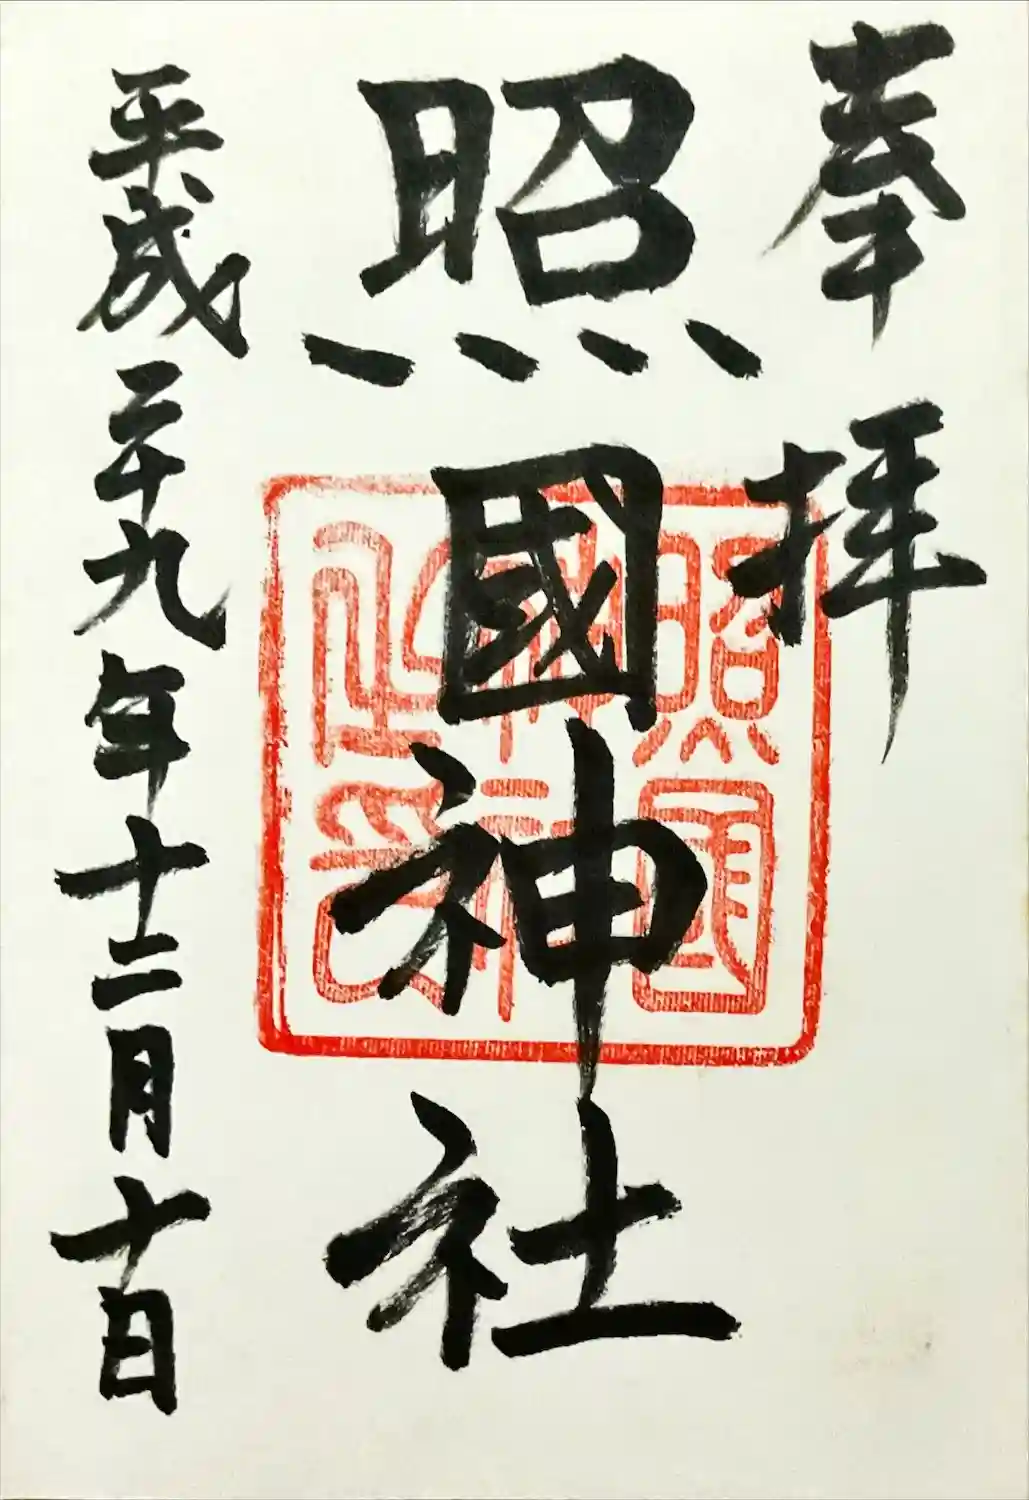 奉拝
照國神社
平成二十九年十二月十日
照國
神社
之印